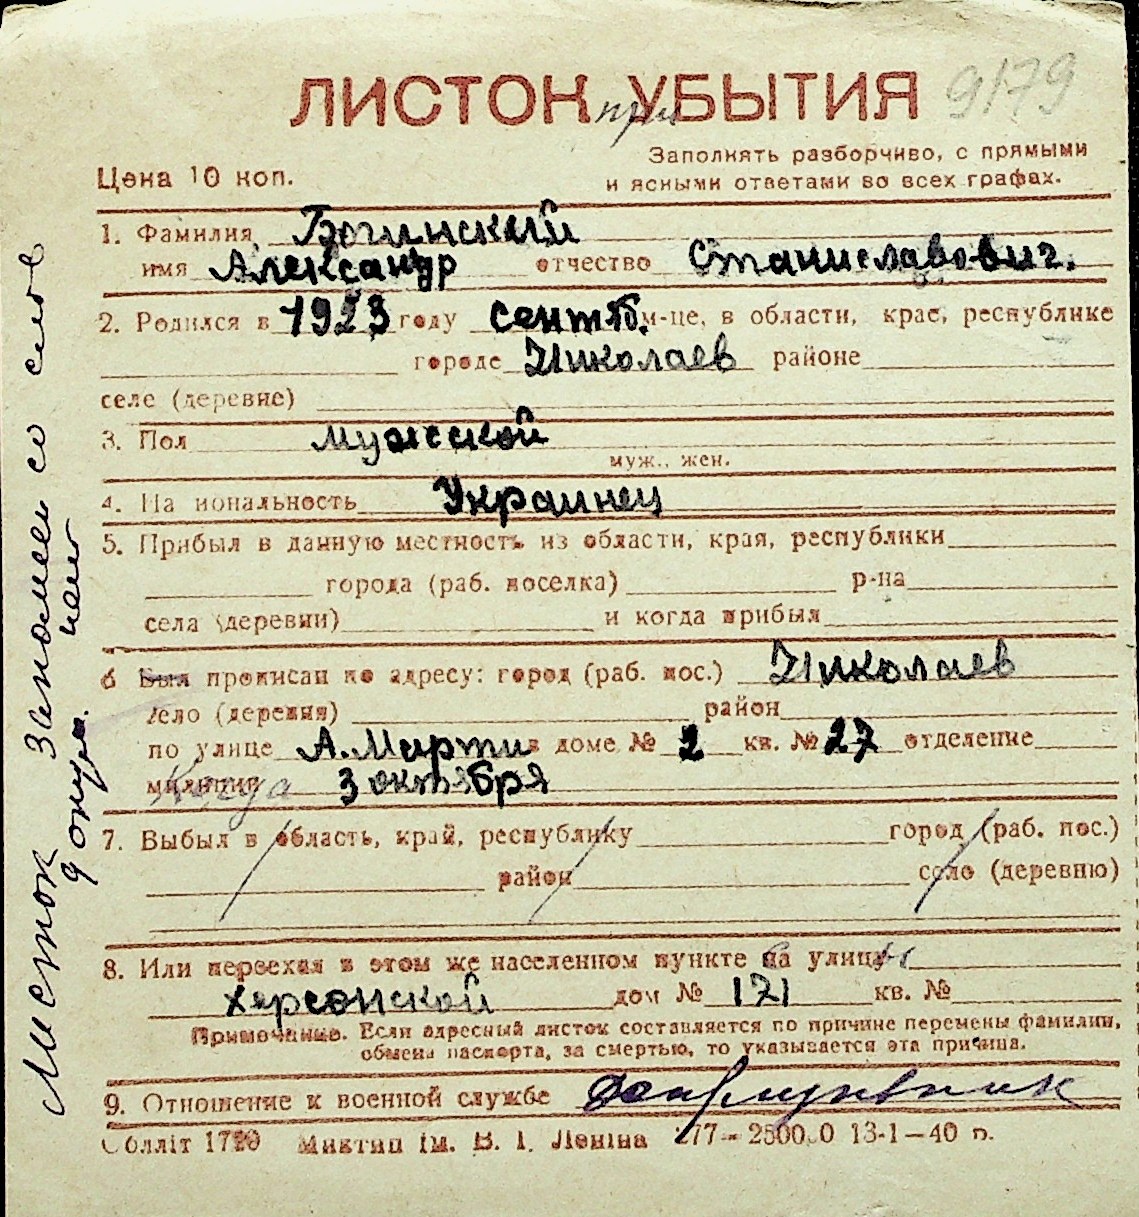 ЛИСТОК при УБЫТИЯ 9179
Заполнять разборчиво, с прямыми
Цена 10 коп.
и ясными ответами во всех графах.
1. Фамилия Богинский
имя Александр отчество Станиславович.
2. Родился в 1923 году сентяб. м-це, в области, крае, республике
городе Николаев районе
селе (деревне)
3. Пол мужской
муж., жен.
4. На иональность Украинец
5. Прибыл в данную местность из области, края, республики
города (раб. поселка) р-на
села (деревни) и когда прибыл
6 Был прописан по адресу: город (раб. пос.) Николаев
село (деревня) район
по улице А. Марти в доме № 2 кв. № 27 отделение
милиции Когда 3 октября
7. Выбыл в область, край, республику город (раб. пос.)
район село (деревню)
8. Или переехал в этом же населенном пункте на улицу
Херсонской дом № 121 кв. №
Примечание. Если адресный листок составляется по причине перемены фамилии,
обмена паспорта, за смертью, то указывается эта причина.
9. Отношение к военной службе
Облліт 1720 Миктип ім. В. І. Леніна 277 - 2500.0 13-1-40 п.
Листок со